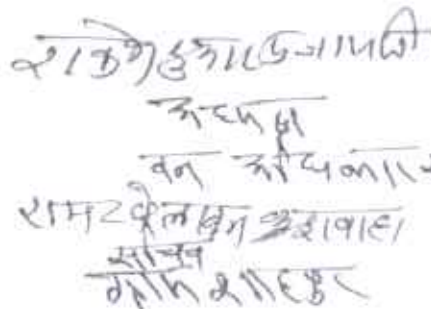 राकेश कुमार प्रजापती
अध्यक्ष
वन अधिकार
राम खेलावन कुशवाहा
सचिव
ग्राम शाहपुर